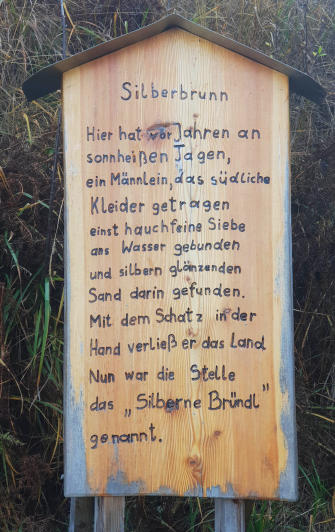 Silberbrunn
Hier hat vor Jahren an
sonnheißen Tagen,
ein Männlein, das südliche
Kleider getragen
einst hauchfeine Siebe
ans Wasser gebunden
und silbern glänzenden
Sand darin gefunden.
Mit dem Schatz in der
Hand verließ er das Land
Nun war die Stelle
das „Silberne Bründl"
genannt.